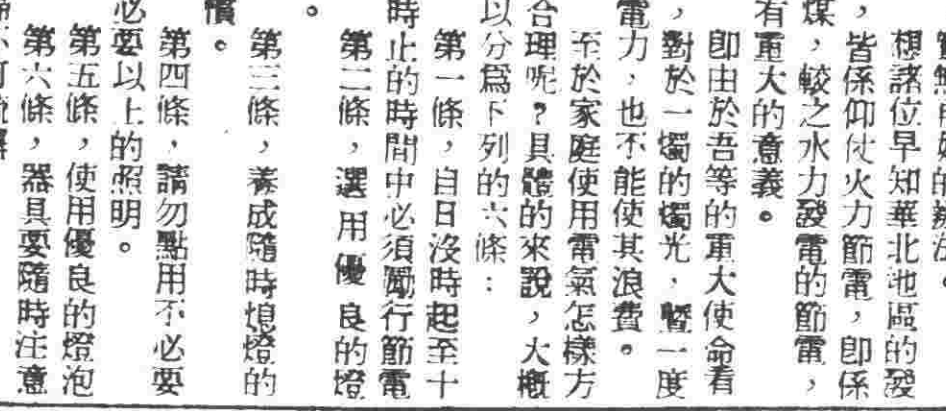 想諸位早知華北地區的發
，皆係仰仗火力節電，卽係
煤，較之水力發電的節電，
有重大的意義。
卽由於吾等的重大使命看
，對於一燭的燭光，暨一度
電力，也不能使其浪費。
至於家庭使用電氣怎樣方
合理呢？具體的來說，大概
以分爲下列的六條：
第一條，自日沒時起至十
時止的時間中必須勵行節電
。
第二條，選用優良的燈
第三條，養成隨時熄燈的
慣。
第四條，請勿點用不必要
必要以上的照明。
第五條，使用優良的燈泡
第六條，器具要隨時注意